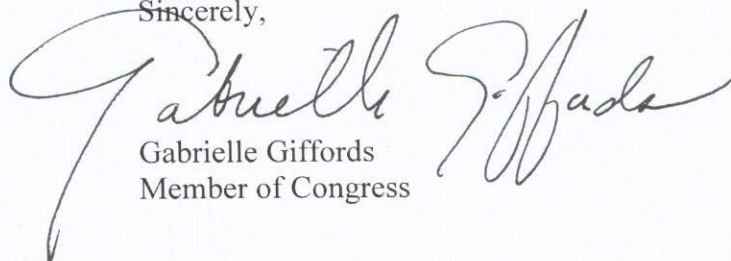 Sincerely,
Gabrielle Giffords
Gabrielle Giffords
Member of Congress